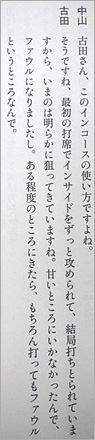 中山　古田さん、このインコースの使い方ですよね。
古田　そうですね、最初の打席でインサイドをずっと攻められて、結局打ちとられていま
すから、いまのは明らかに狙ってきていますね。甘いところにいかなかったんで、
ファウルになりましたし。ある程度のところにきたら、もちろん打ってもファウル
というところなんで。